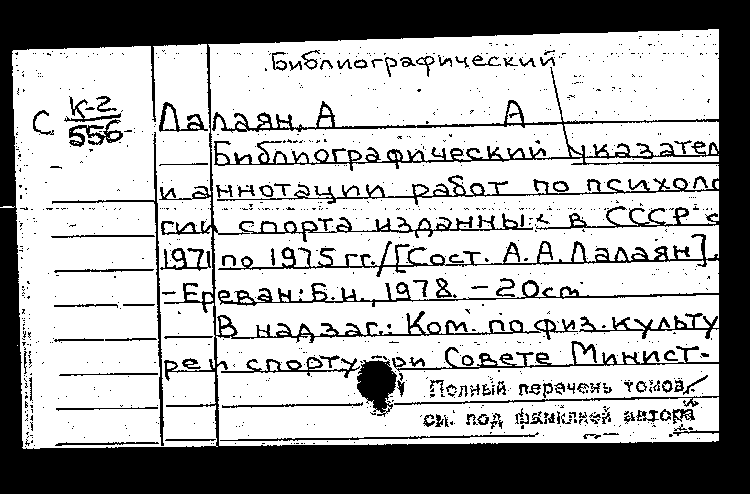 Библиографический
С К-2
556
Лалаян, А А
Библиографический указател
и аннотации работ по психоло
гии спорта изданных в СССР с
1971 по 1975 гг./[Сост. А.А.Лалаян].
-Ереван: Б.и., 1978. - 20см
В надзаг.: Ком. по физ. культу
ре и спорту при Совете Минист-
Полный перечень томов
см. под фамилией автора